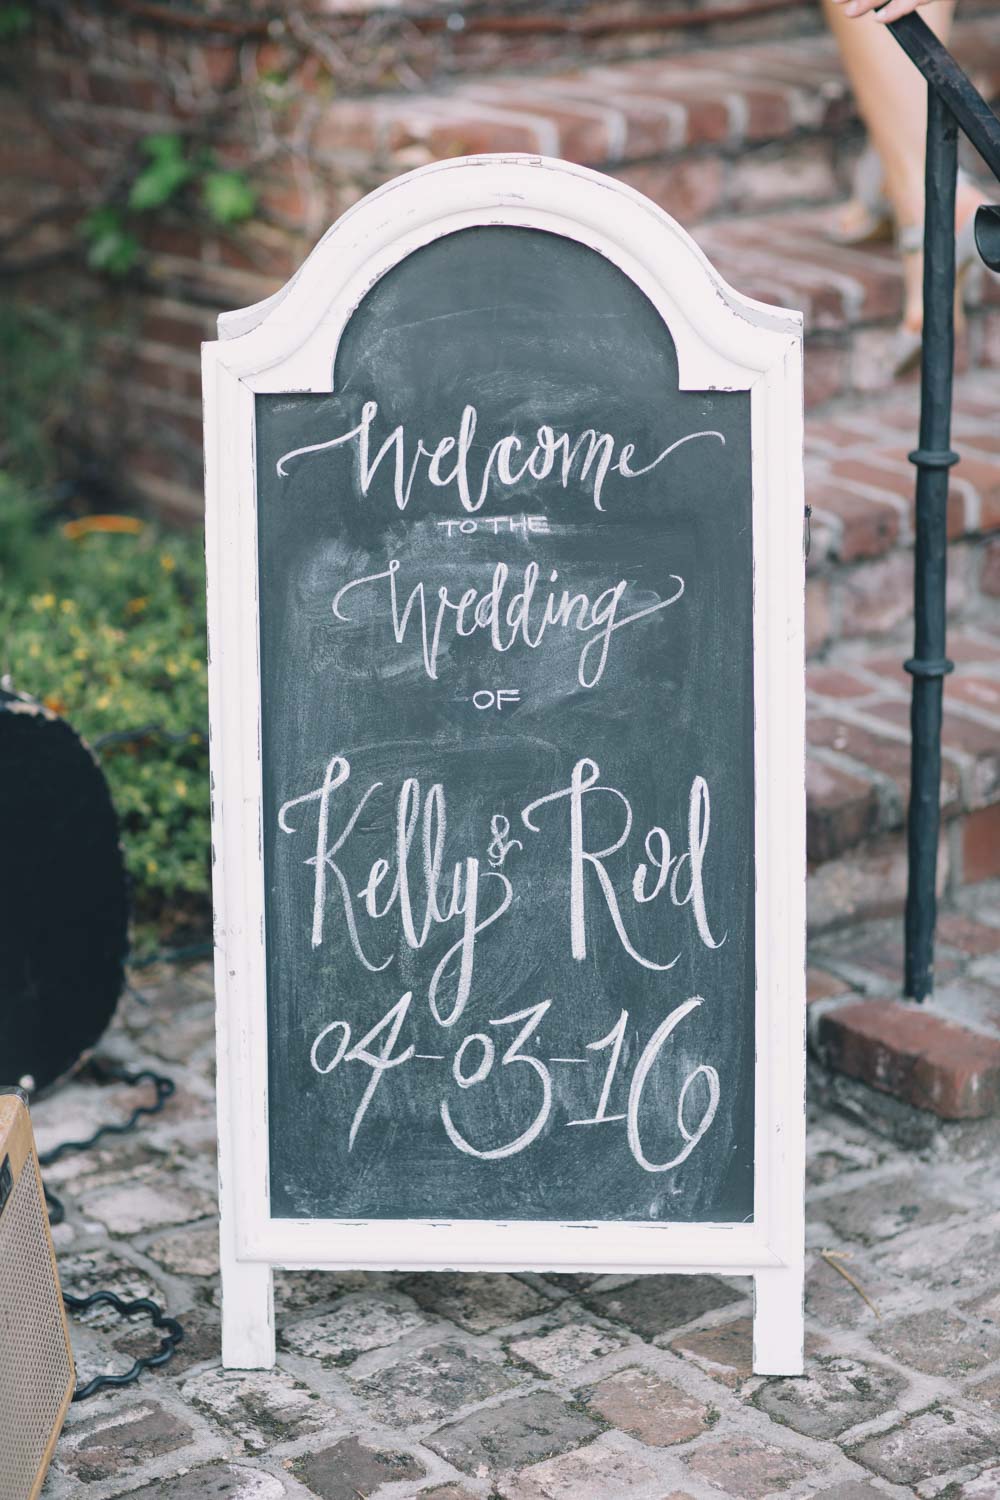 Welcome
TO THE
Wedding
OF
Kelly & Rod
04-03-16